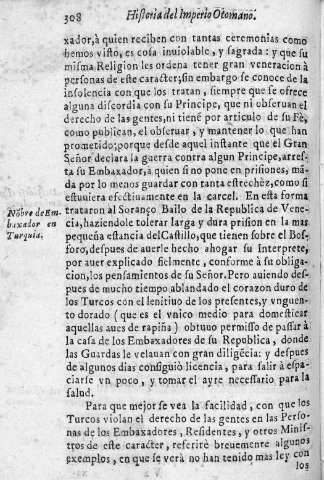 308 Historia del Imperio Otomano.
xador, à quien reciben con tantas ceremonias como
hemos visto, es cosa inuiolable, y sagrada: y que su
misma Religion les ordena tener gran veneracion à
personas de este caracter; sin embargo se conoce de la
insolencia con que los tratan, siempre que se ofrece
alguna discordia con su Principe, que ni obseruan el
derecho de las gentes, ni tienē por articulo de su Fè,
como publican, el obseruar, y mantener lo que han
prometido; porque desde aquel instante que el Gran
Señor declara la guerra contra algun Principe, arres-
ta su Embaxador, a quien si no pone en prisiones, mā-
da por lo menos guardar con tanta estrechèz, como si
estuuiera efectiuamente en la carcel. En esta forma
trataron al Soranço Bailo de la Republica de Vene-
cia, haziendole tolerar larga y dura prision en la mas
pequeña estancia del Castillo, que tienen sobre el Bos-
foro, despues de auerle hecho ahogar su Interprete,
por auer explicado fielmente, conforme à su obliga-
cion, los pensamientos de su Señor. Pero auiendo des-
pues de mucho tiempo ablandado el corazon duro de
los Turcos con el lenitiuo de los presentes, y vnguen-
to dorado (que es el vnico medio para domesticar
aquellas aues de rapiña) obtuuo permisso de passar à
la casa de los Embaxadores de su Republica, donde
las Guardas le velauan con gran diligēcia: y despues
de algunos dias consiguiò licencia, para salir à espa-
ciarse vn poco, y tomar el ayre necessario para la
salud.
Nōbre de Em-
baxador en
Turquia.
Para que mejor se vea la facilidad, con que los
Turcos violan el derecho de las gentes en las Perso-
nas de los Embaxadores, Residentes, y otros Minis-
tros de este caracter, referirè breuemente algunos
exemplos, en que se verà no han tenido mas ley con
los